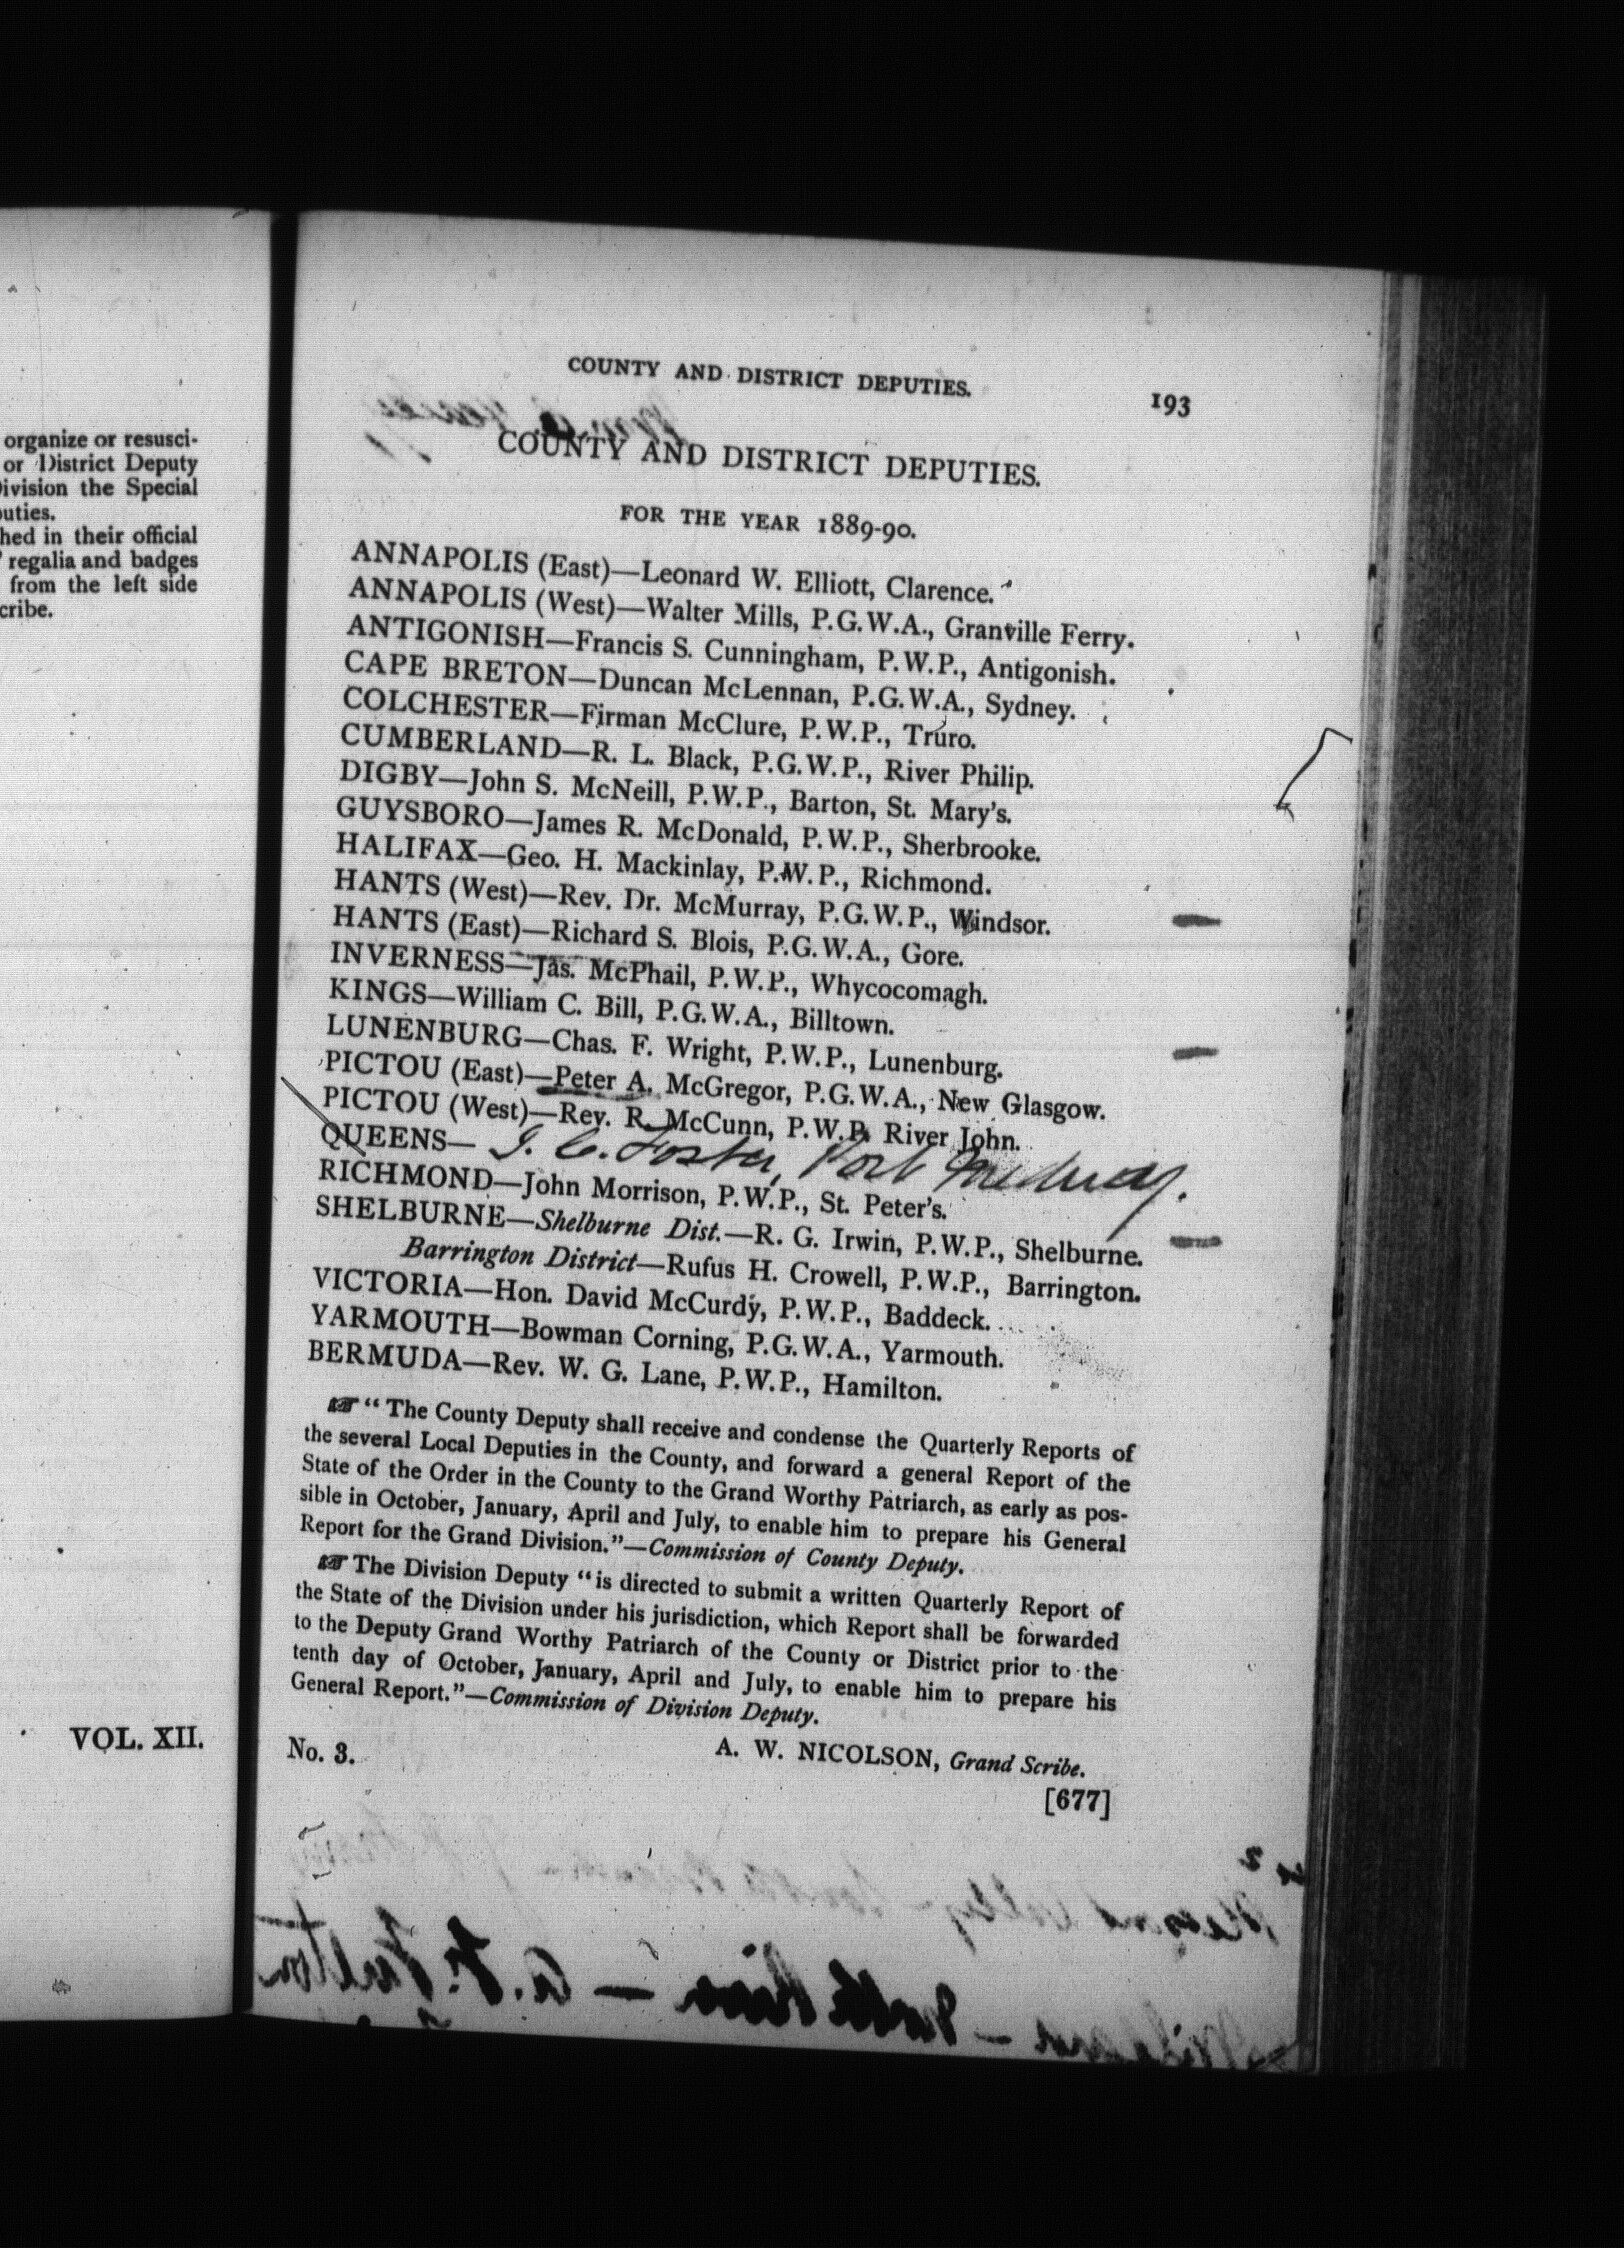 organize or resusci-
or District Deputy
Division the Special
puties.
hed in their official
regalia and badges
from the left side
cribe.
VOL. XII.
COUNTY AND DISTRICT DEPUTIES.
193
COUNTY AND DISTRICT DEPUTIES.
FOR THE YEAR 1889-90.
ANNAPOLIS (East)—Leonard W. Elliott, Clarence.
ANNAPOLIS (West)—Walter Mills, P.G.W.A., Granville Ferry.
ANTIGONISH—Francis S. Cunningham, P.W.P., Antigonish.
CAPE BRETON—Duncan McLennan, P.G.W.A., Sydney.
COLCHESTER—Firman McClure, P.W.P., Truro.
CUMBERLAND—R. L. Black, P.G.W.P., River Philip.
DIGBY—John S. McNeill, P.W.P., Barton, St. Mary's.
GUYSBORO—James R. McDonald, P.W.P., Sherbrooke.
HALIFAX—Geo. H. Mackinlay, P.W.P., Richmond.
HANTS (West)—Rev. Dr. McMurray, P.G.W.P., Windsor.
HANTS (East)—Richard S. Blois, P.G.W.A., Gore.
INVERNESS—Jas. McPhail, P.W.P., Whycocomagh.
KINGS—William C. Bill, P.G.W.A., Billtown.
LUNENBURG—Chas. F. Wright, P.W.P., Lunenburg.
PICTOU (East)—Peter A. McGregor, P.G.W.A., New Glasgow.
PICTOU (West)—Rev. R. McCunn, P.W.P. River John.
QUEENS— I. C. Foster, Port Medway.
RICHMOND—John Morrison, P.W.P., St. Peter's.
SHELBURNE—Shelburne Dist.—R. G. Irwin, P.W.P., Shelburne.
Barrington District—Rufus H. Crowell, P.W.P., Barrington.
VICTORIA—Hon. David McCurdy, P.W.P., Baddeck.
YARMOUTH—Bowman Corning, P.G.W.A., Yarmouth.
BERMUDA—Rev. W. G. Lane, P.W.P., Hamilton.
☞ "The County Deputy shall receive and condense the Quarterly Reports of
the several Local Deputies in the County, and forward a general Report of the
State of the Order in the County to the Grand Worthy Patriarch, as early as pos-
sible in October, January, April and July, to enable him to prepare his General
Report for the Grand Division."—Commission of County Deputy.
☞ The Division Deputy "is directed to submit a written Quarterly Report of
the State of the Division under his jurisdiction, which Report shall be forwarded
to the Deputy Grand Worthy Patriarch of the County or District prior to the
tenth day of October, January, April and July, to enable him to prepare his
General Report."—Commission of Division Deputy.
A. W. NICOLSON, Grand Scribe.
No. 3.
[677]